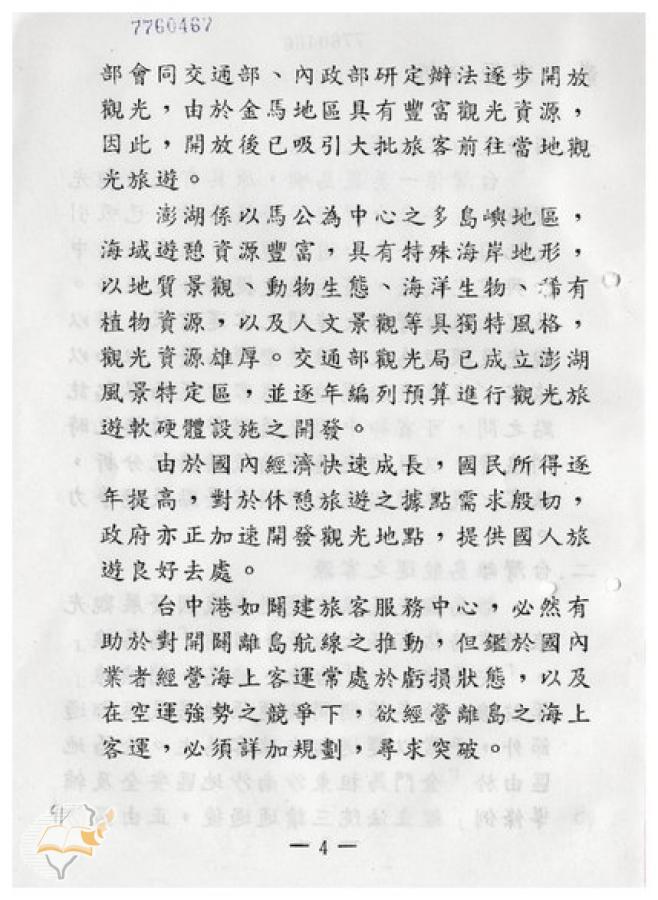 7760467
部會同交通部、內政部研定辦法逐步開放
觀光，由於金馬地區具有豐富觀光資源，
因此，開放後已吸引大批旅客前往當地觀
光旅遊。
澎湖係以馬公為中心之多島嶼地區，
海域遊憩資源豐富，具有特殊海岸地形，
以地質景觀、動物生態、海洋生物、稀有
植物資源，以及人文景觀等具獨特風格，
觀光資源雄厚。交通部觀光局已成立澎湖
風景特定區，並逐年編列預算進行觀光旅
遊軟硬體設施之開發。
由於國內經濟快速成長，國民所得逐
年提高，對於休憩旅遊之據點需求殷切，
政府亦正加速開發觀光地點，提供國人旅
遊良好去處。
台中港如闢建旅客服務中心，必然有
助於對開闢離島航線之推動，但鑑於國內
業者經營海上客運常處於虧損狀態，以及
在空運強勢之競爭下，欲經營離島之海上
客運，必須詳加規劃，尋求突破。
— 4 —